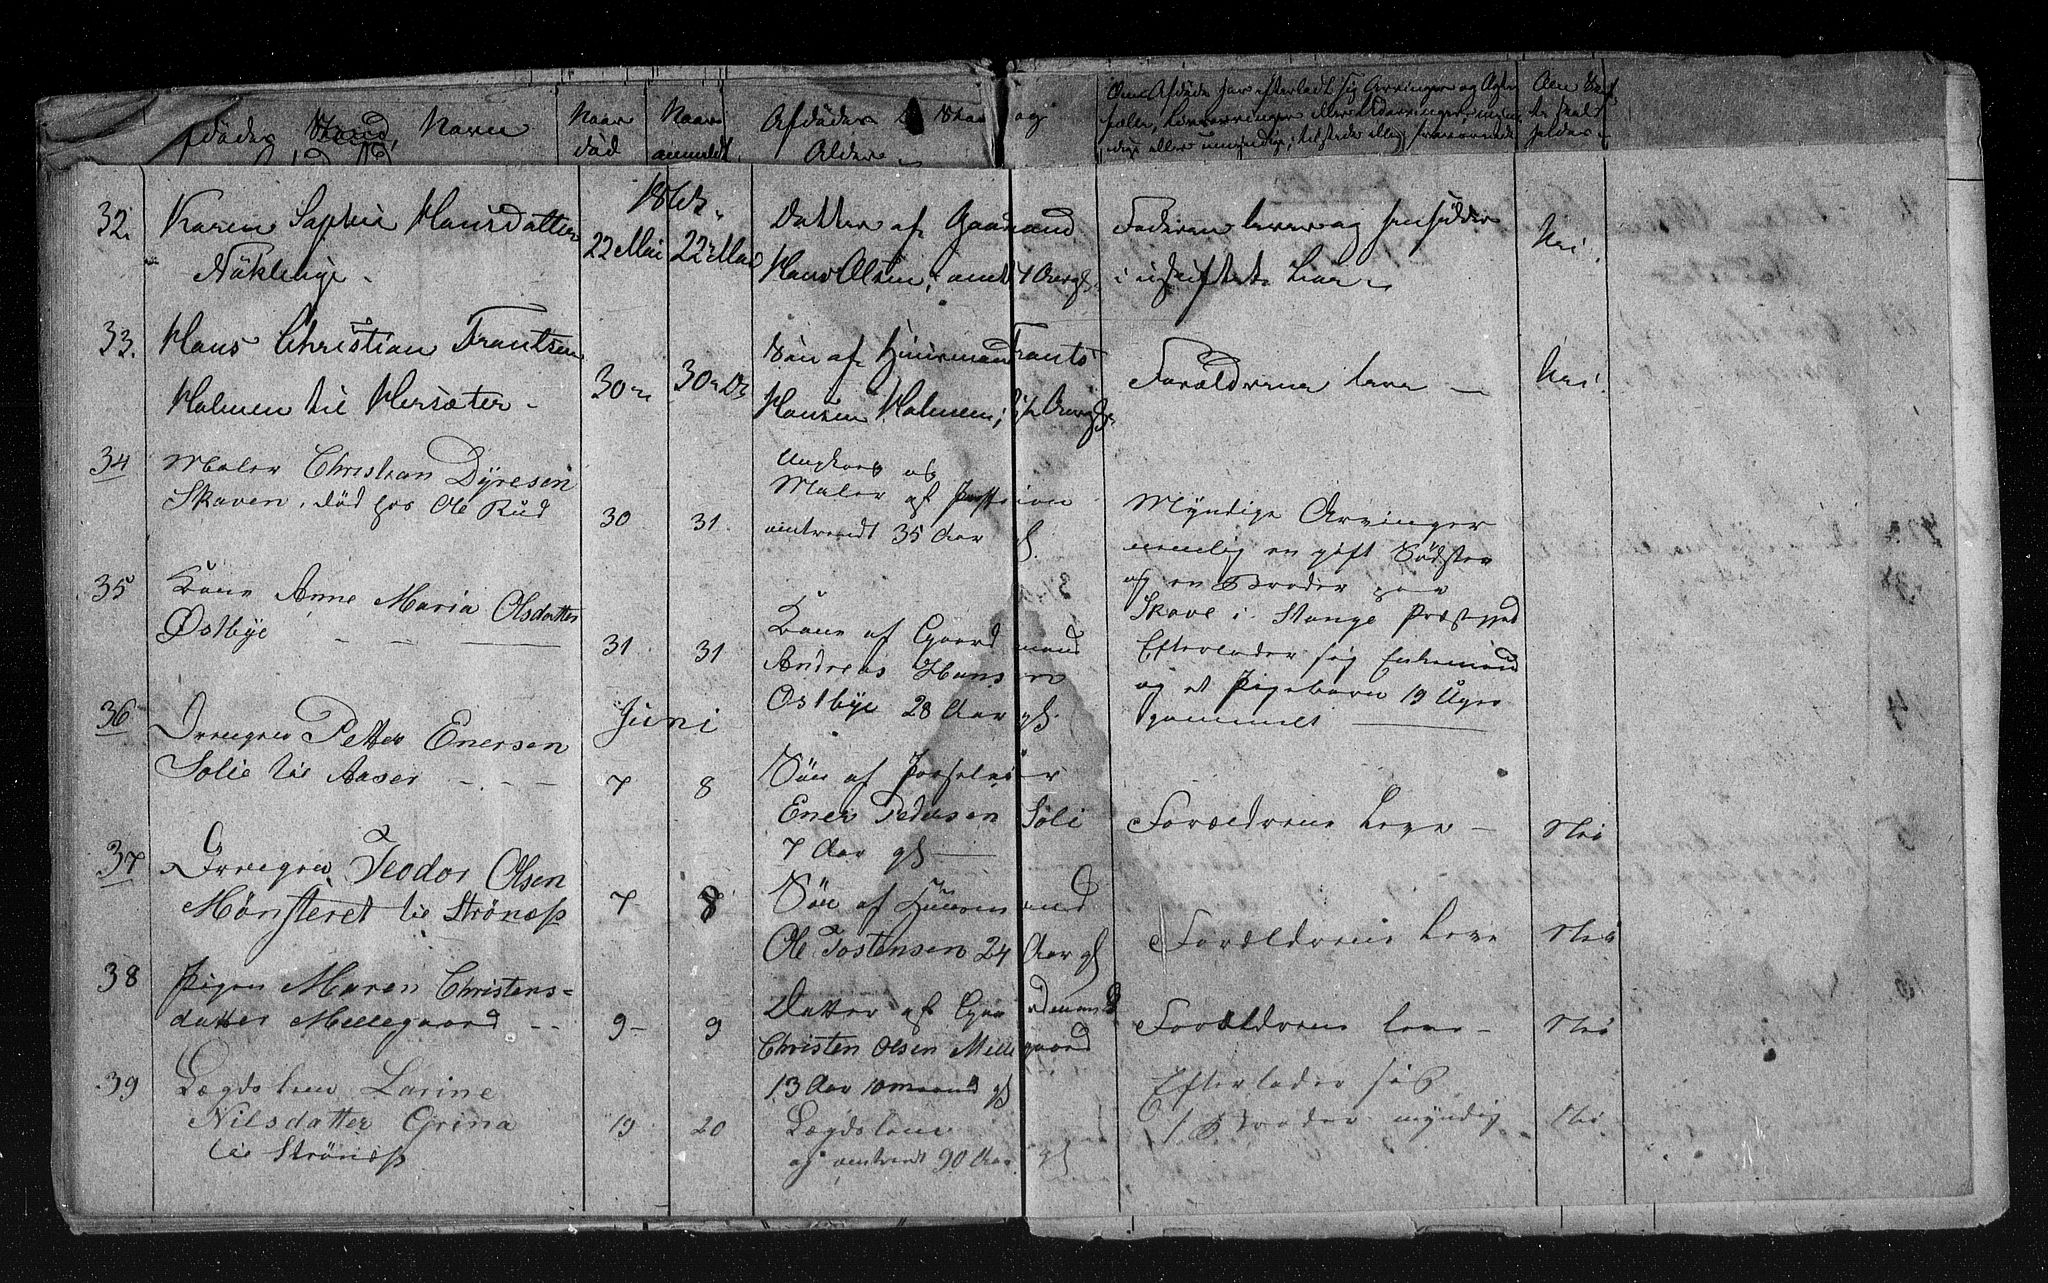 Afdødes Stand, Navn
Naar død
Naar anmeldt
Afdødes Stand og
Alder
Om Afdøde har efterladt sig Arvinger og Ægte
fælle, Livsarvinger eller Udarvinger, myn
dige eller umyndige, tilstede eller fraværende
32.
Karen Sophie Hansdatter
Nøklebye.
22 Mai
22 Mai
Datter af Gaardmand
Hans Olsen; omt
Faderen lever og hensidder
i uskiftet Boe.
Nei.
33.
Hans Christian Frantsen
Holmen til Hersæter.
30
30
Søn af Huusmand Frants
Hansen Holmen; 1/2 Aar gl.
Forældrene leve
Nei.
34
Maler Christian Dyresen
Skaven, død hos Ole Rud
30
31
Ungkarl og
Maler af Profession
omtrendt 35 Aar gl.
Myndige Arvinger
nemlig en gift Sødster
og en Broder paa
Skave i Stange Præstgjed
35
Kone Anne Maria Olsdatter
Østbye
31
31
Kone af Gaardmand
Andreas Hansen
Østbye 28 Aar gl.
Efterlader sig Enkemand
og et Pigebarn 19 Uger
gammelt
36
Juni
Drengen Petter Enersen
Solie til Aaser
7
8
Søn af
Ener Pedersen Soli
7 Aar gl
Forældrene Leve
Nei
37
Drengen Teodor Olsen
Mønsteret til Strønæss
7
8
Søn af Huusmand
Ole Tostensen 24 Aar gl
Forældrene Leve
Nei
38
Pigen Maren Christens=
datter Millegaard
9
9
Datter af Gaardmand
Christen Olsen Millegaard
13 Aar 10 maaned gl
Forældrene leve
Nei
39
Lægdslem Larine
Nilsdatter Grina
til Strønæss
19
20
Lægdslem
og omtrendt 90 Aar gl
Efterlader sig
1 Broder myndig
Nei